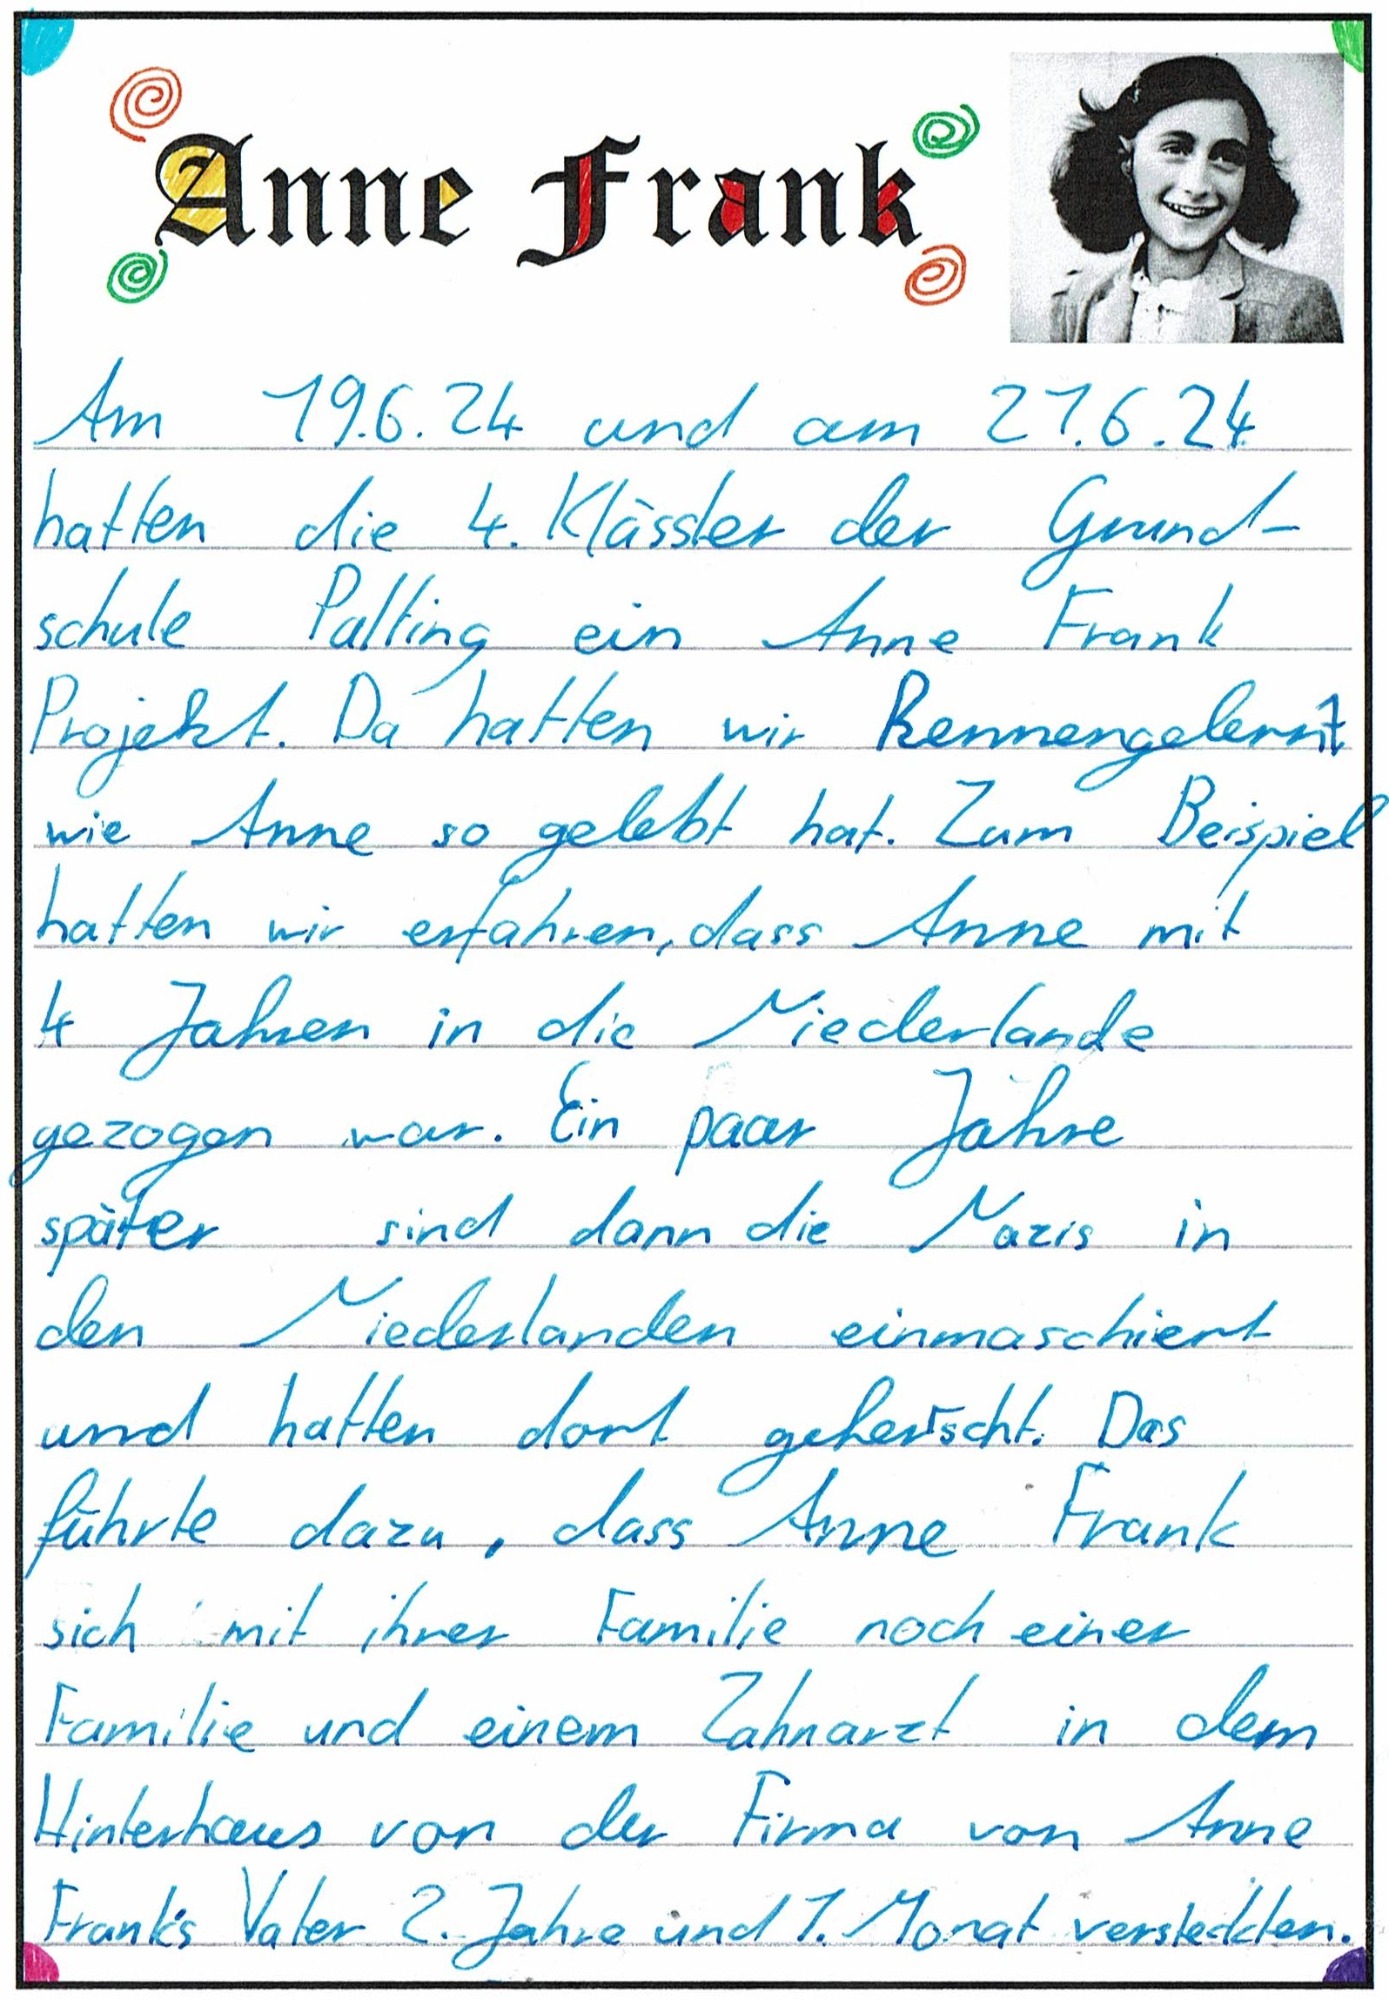 Anne Frank
Am 19.6.24 und am 21.6.24
hatten die 4. Klässler der Grund-
schule Palting ein Anne Frank
Projekt. Da hatten wir Kennengelernt
wie Anne so gelebt hat. Zum Beispiel
hatten wir erfahren, dass Anne mit
4 Jahren in die Niederlande
gezogen war. Ein paar Jahre
später sind dann die Nazis in
den Niederlanden einmaschiert
und hatten dort geherrscht. Das
führte dazu, dass Anne Frank
sich mit ihrer Familie noch einer
Familie und einem Zahnarzt in dem
Hinterhaus von der Firma von Anne
Frank's Vater 2. Jahre und 1. Monat versteckten.